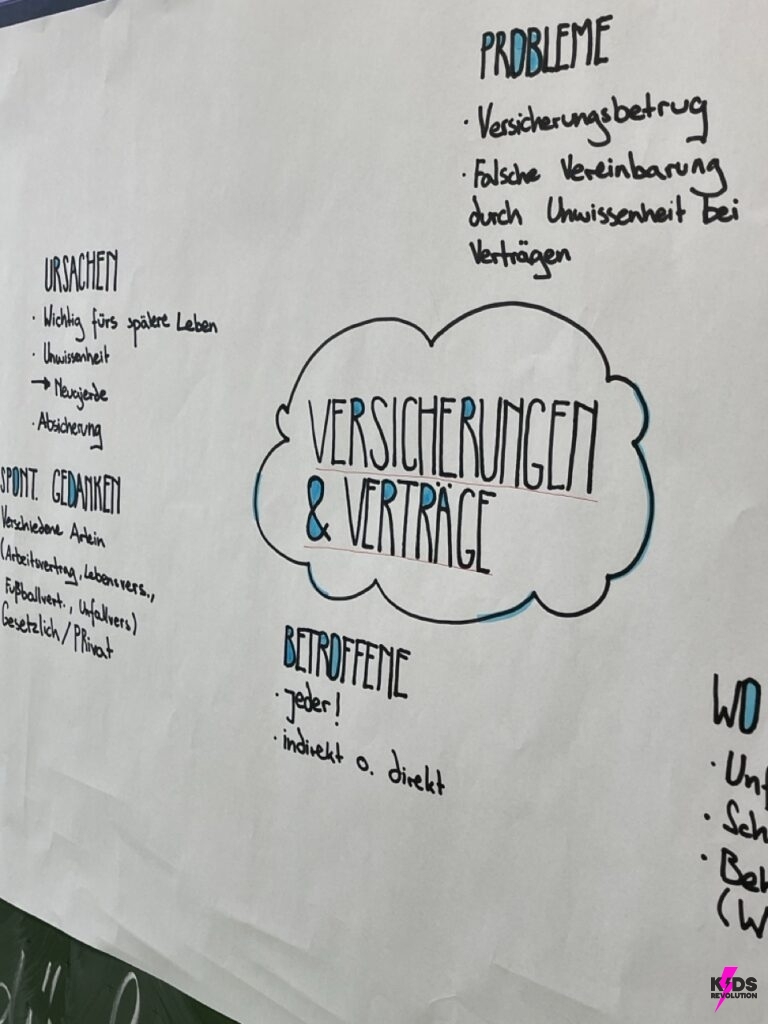 PROBLEME
· Versicherungsbetrug
· Falsche Vereinbarung
durch Unwissenheit bei
Verträgen
URSACHEN
· Wichtig fürs spätere Leben
· Unwissenheit
→ Neugierde
· Absicherung
SPONT. GEDANKEN
Verschiedene Arten
(Arbeitsvertrag, Lebensvers.,
Fußballvert., Unfallvers)
Gesetzlich / Privat
VERSICHERUNGEN
& VERTRÄGE
BETROFFENE
· jeder!
· indirekt o. direkt
WO
· Unf
· Sch
· Beh
(W
KIDS
REVOLUTION